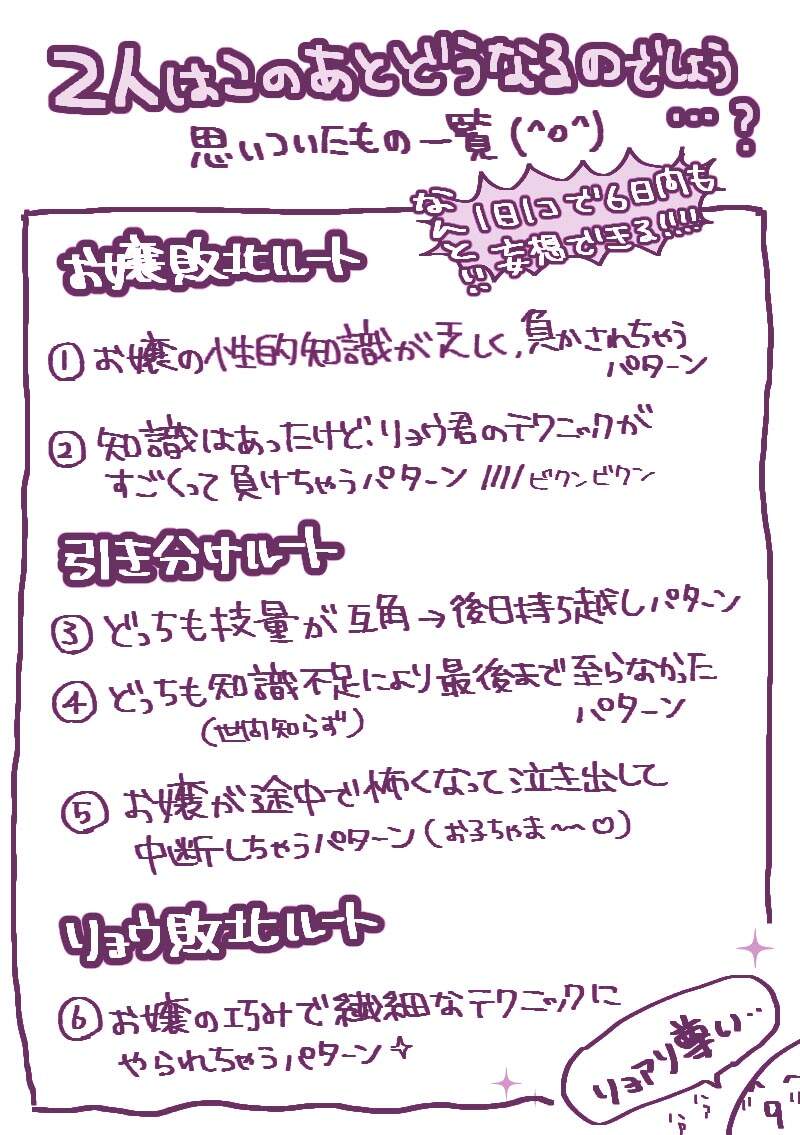 2人はこのあとどうなるのでしょう
…?
思いついたもの一覧(^o^)
なんと…!!
1日1コで6日間も
妄想できる!!!!
お嬢敗北ルート
① お嬢の性的知識が乏しく、負かされちゃう
パターン
② 知識はあったけど、リョウ君のテクニックが
すごくって負けちゃうパターン //// ビクンビクン
引き分けルート
③ どっちも技量が互角→後日持ち越しパターン
④ どっちも知識不足により最後まで至らなかった
(世間知らず) パターン
⑤ お嬢が途中で怖くなって泣き出して
中断しちゃうパターン(お子ちゃま〜〜♡)
リョウ敗北ルート
⑥ お嬢の巧みで繊細なテクニックに
やられちゃうパターン✧
リョアリ尊い…